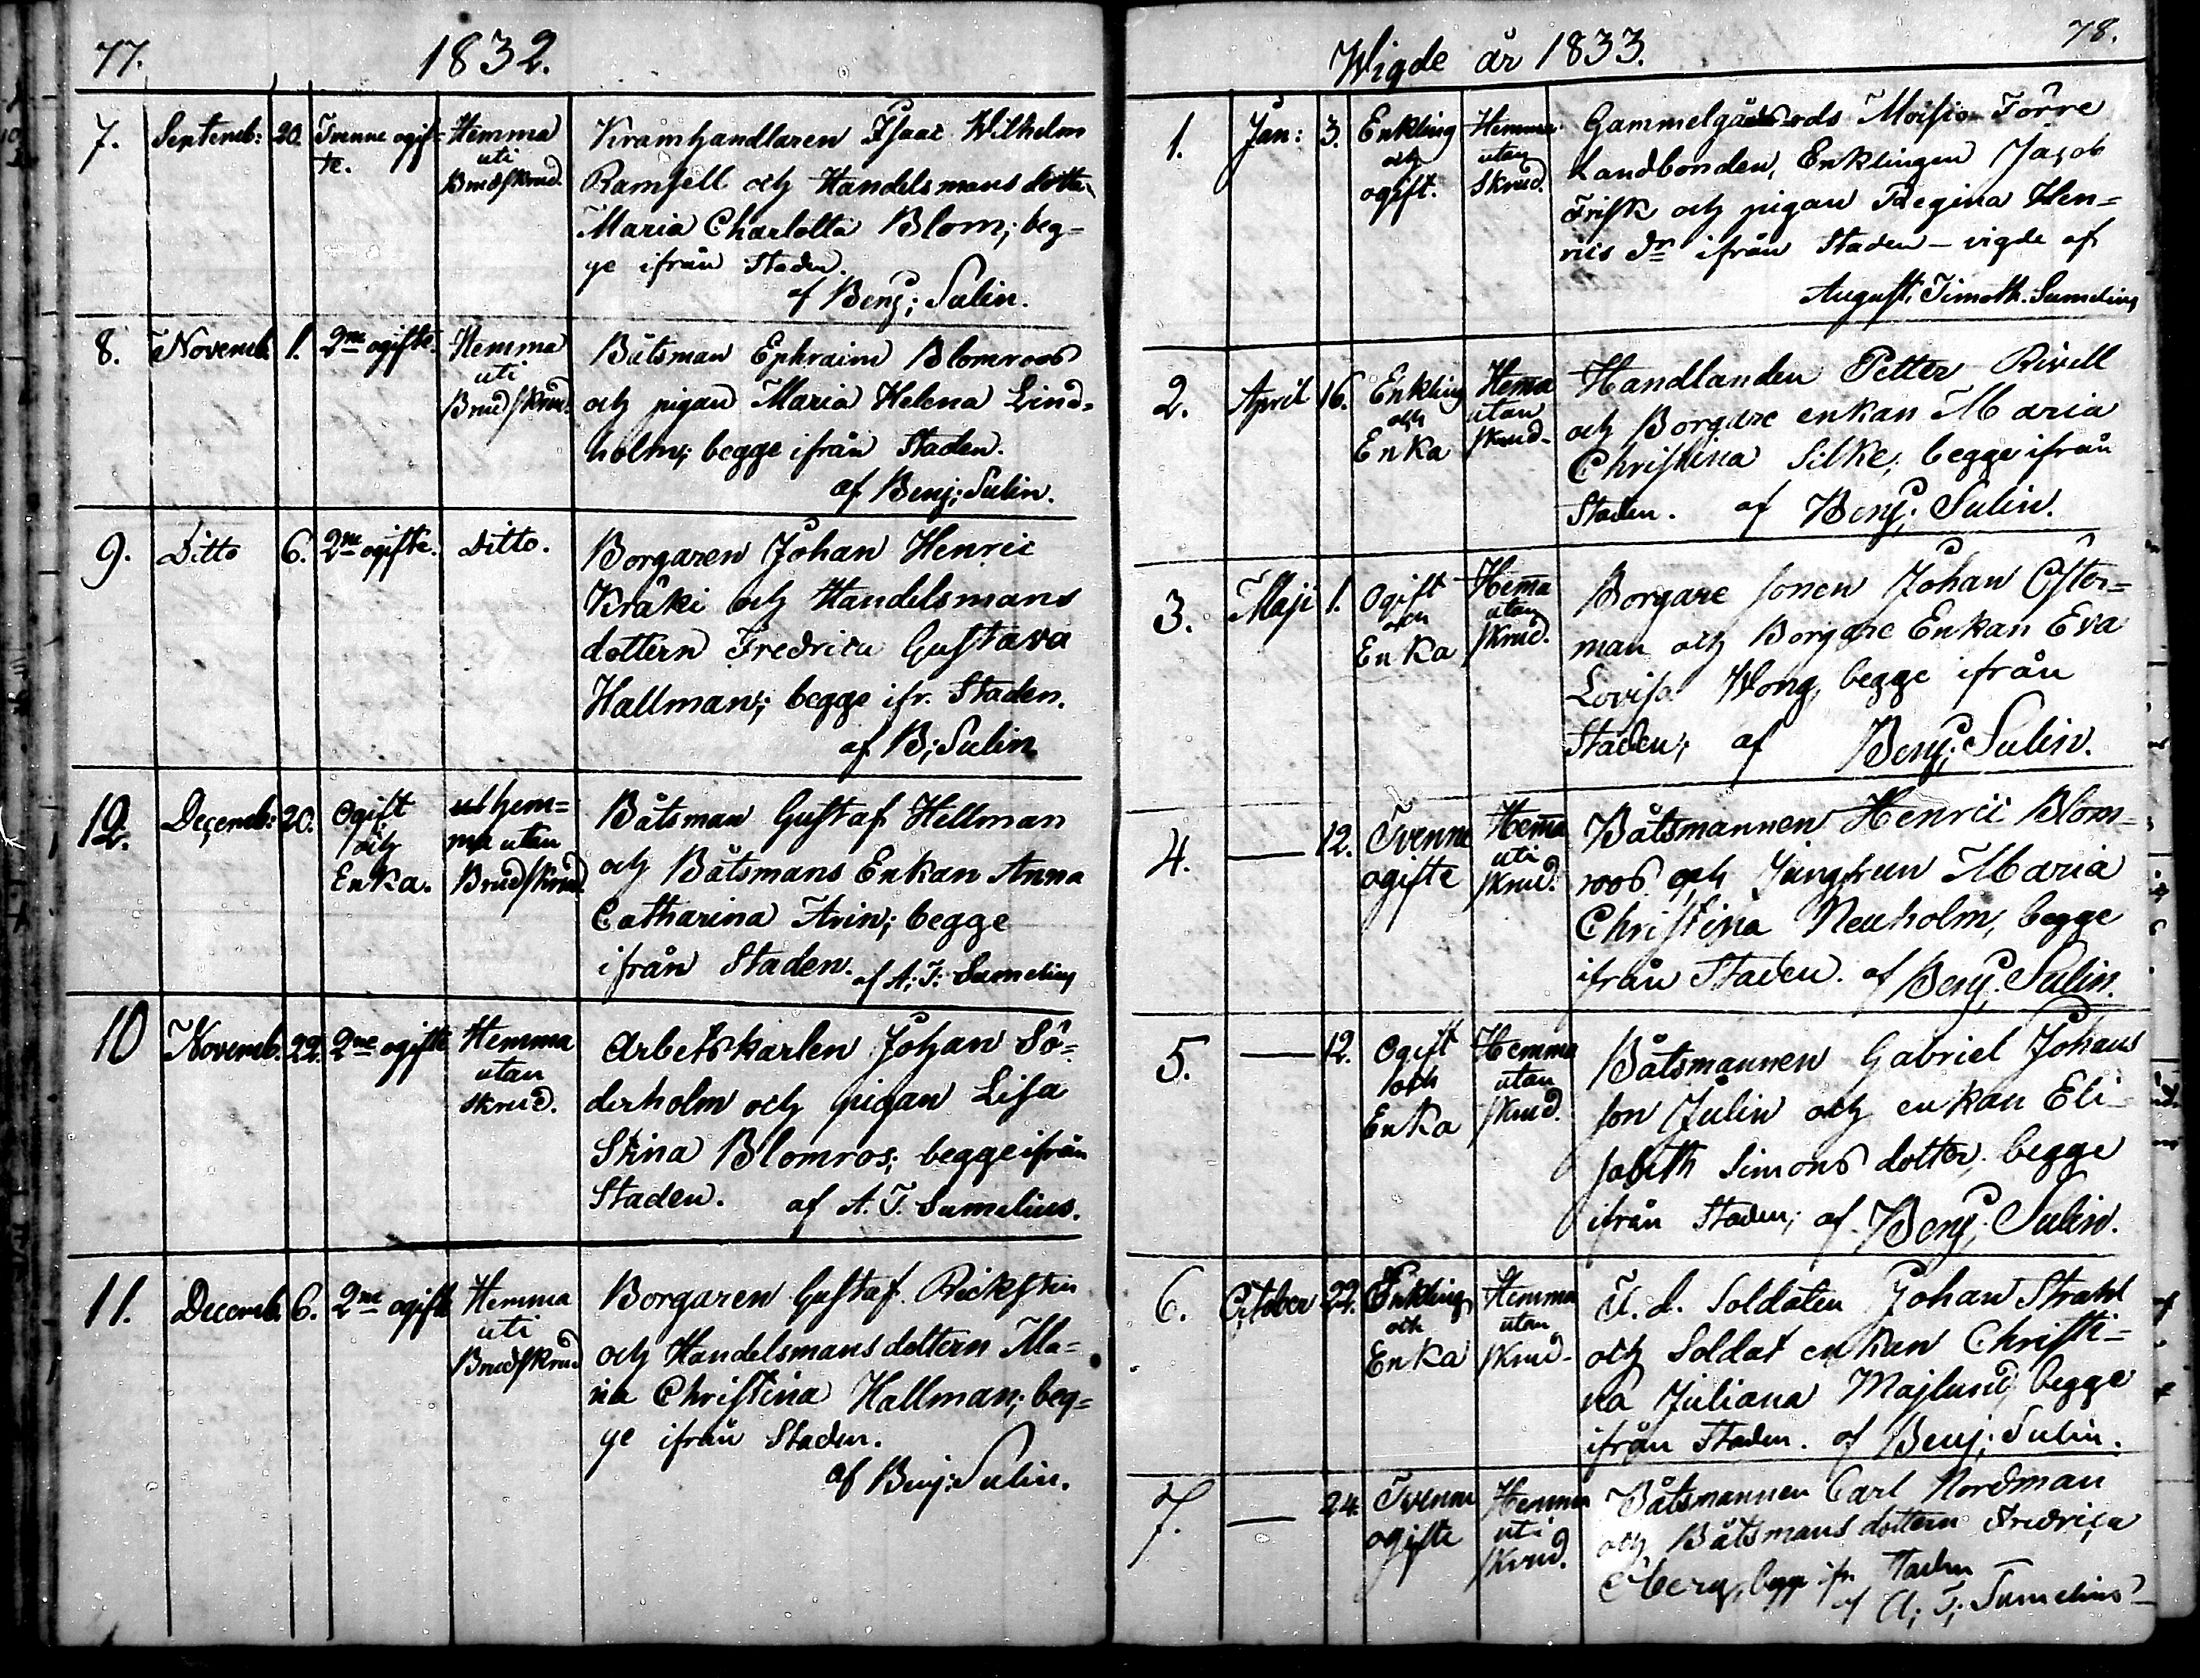 77.
1832.
7. Septemb: 20. Tvenne ogif=
te.
Hemma
uti
Brudskrud.
Kramhandlaren Isaac Wilhelm
Ramsell och Handelsmans dotter
Maria Charlotta Blom; beg=
ge ifrån Staden.
af Benj; Salin.
8. Novemb. 1. 2ne ogifte.
Hemma
uti
Brudskrud.
Båtsman Ephraim Blomroos
och pigan Maria Helena Lind=
holm; begge ifrån Staden.
af Benj; Salin.
9. Ditto 6. 2ne ogifte. Ditto.
Borgaren Johan Henric
Kråki och Handelsmans
dottern Fredrica Gustava
Hallman; begge ifr. Staden.
af B; Salin.
12. Decemb: 20. Ogift
och
Enka.
hem=
ma utan
Brudskrud.
Båtsman Gustaf Hellman
och Båtsmans Enkan Anna
Catharina Arin; begge
ifrån Staden. af A; T. Sumelius
10 Novemb. 22. 2ne ogifte
Hemma
utan
skrud.
Arbetskarlen Johan Sö=
derholm och pigan Lisa
Stina Blomros; begge ifrån
Staden. af A. T. Sumelius.
11. Decemb. 6. 2ne ogifte
Hemma
uti
Brudskrud
Borgaren Gustaf Rickstin
och Handelsmans dottern Ma=
ria Christina Hallman; beg=
ge ifrån Staden.
af Benj: Salin.
78.
Wigde år 1833.
1. Jan: 3. Enkling
och
ogift.
Hemma
utan
Skrud.
Moisio Törre
Landbonden, Enklingen Jacob
Frisk och pigan Regina Hen=
rics dr ifrån Staden – vigde af
August, Timoth. Sumelius
2. April 16. Enkling
och
Enka
Hema
utan
skrud.
Handlanden Petter Rivell
och Borgare enkan Maria
Christina Silke, begge ifrån
Staden. af Benj; Salin.
3. Maji 1. Ogift
och
Enka
Hema
utan
skrud.
Borgare sonen Johan Öster=
man och Borgare Enkan Eva
Lovisa Wong, begge ifrån
Staden; af Benj; Salin.
4. — 12. Tvenne
ogifte
Hema
uti
skrud.
Båtsmannen Henric Blom=
roos och Jungfrun Maria
Christina Neuholm, begge
ifrån Staden. af Benj. Salin.
5. — 12. Ogift
och
Enka
Hemma
utan
skrud.
Båtsmannen Gabriel Johans
son Julin och enkan Eli-
sabeth Simons dotter, begge
ifrån Staden; af Benj; Salin.
6. October 22. Enkling
och
Enka
Hemma
utan
skrud.
F. d. Soldaten Johan Strahl
och Soldat enkan Christi=
na Juliana Majlund, begge
ifrån Staden. af Benj; Salin.
7. — 24. Tvenne
ogifte
Hemma
uti
skrud.
Båtsmannen Carl Nordman
och Båtsmans dottern Fredrica
Öberg, begge ifr. Staden
af A; T; Sumelius